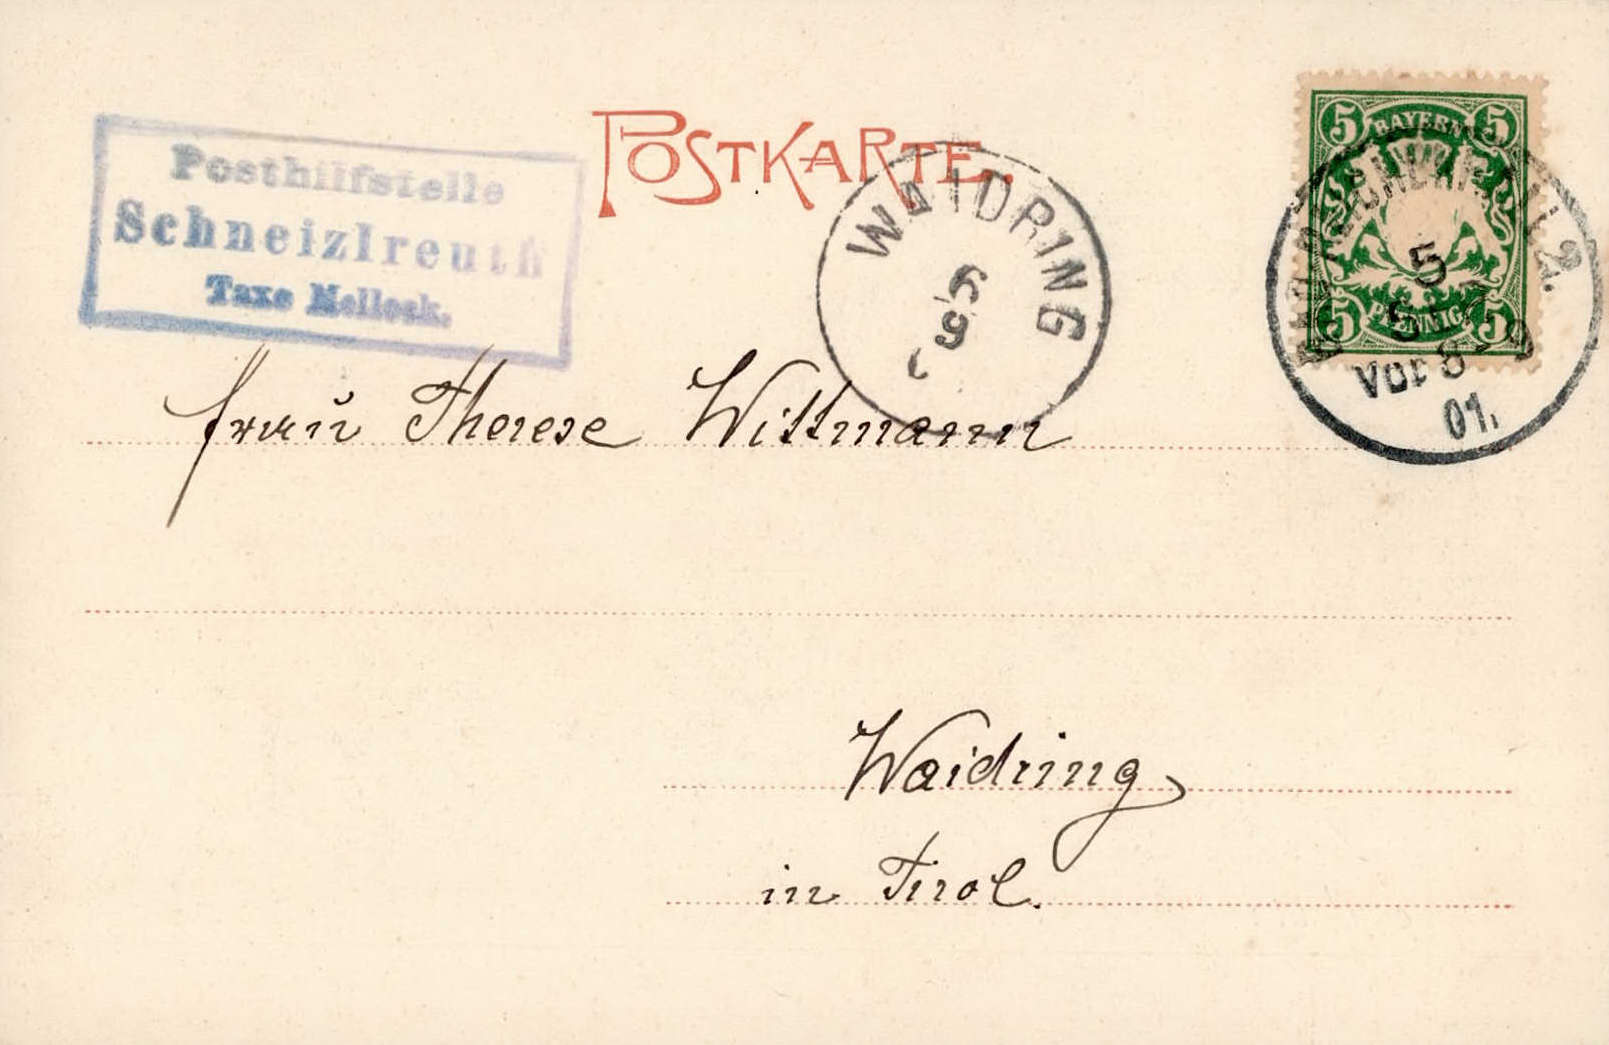 POSTKARTE.
Posthilfstelle
Schneizlreuth
Taxe Melleck.
WAIDRING
5
9
5 BAYERN 5
5 PFENNIG 5
5
Vor 8-9
01.
Frau Therese Wittmann
Waidring
in Tirol.